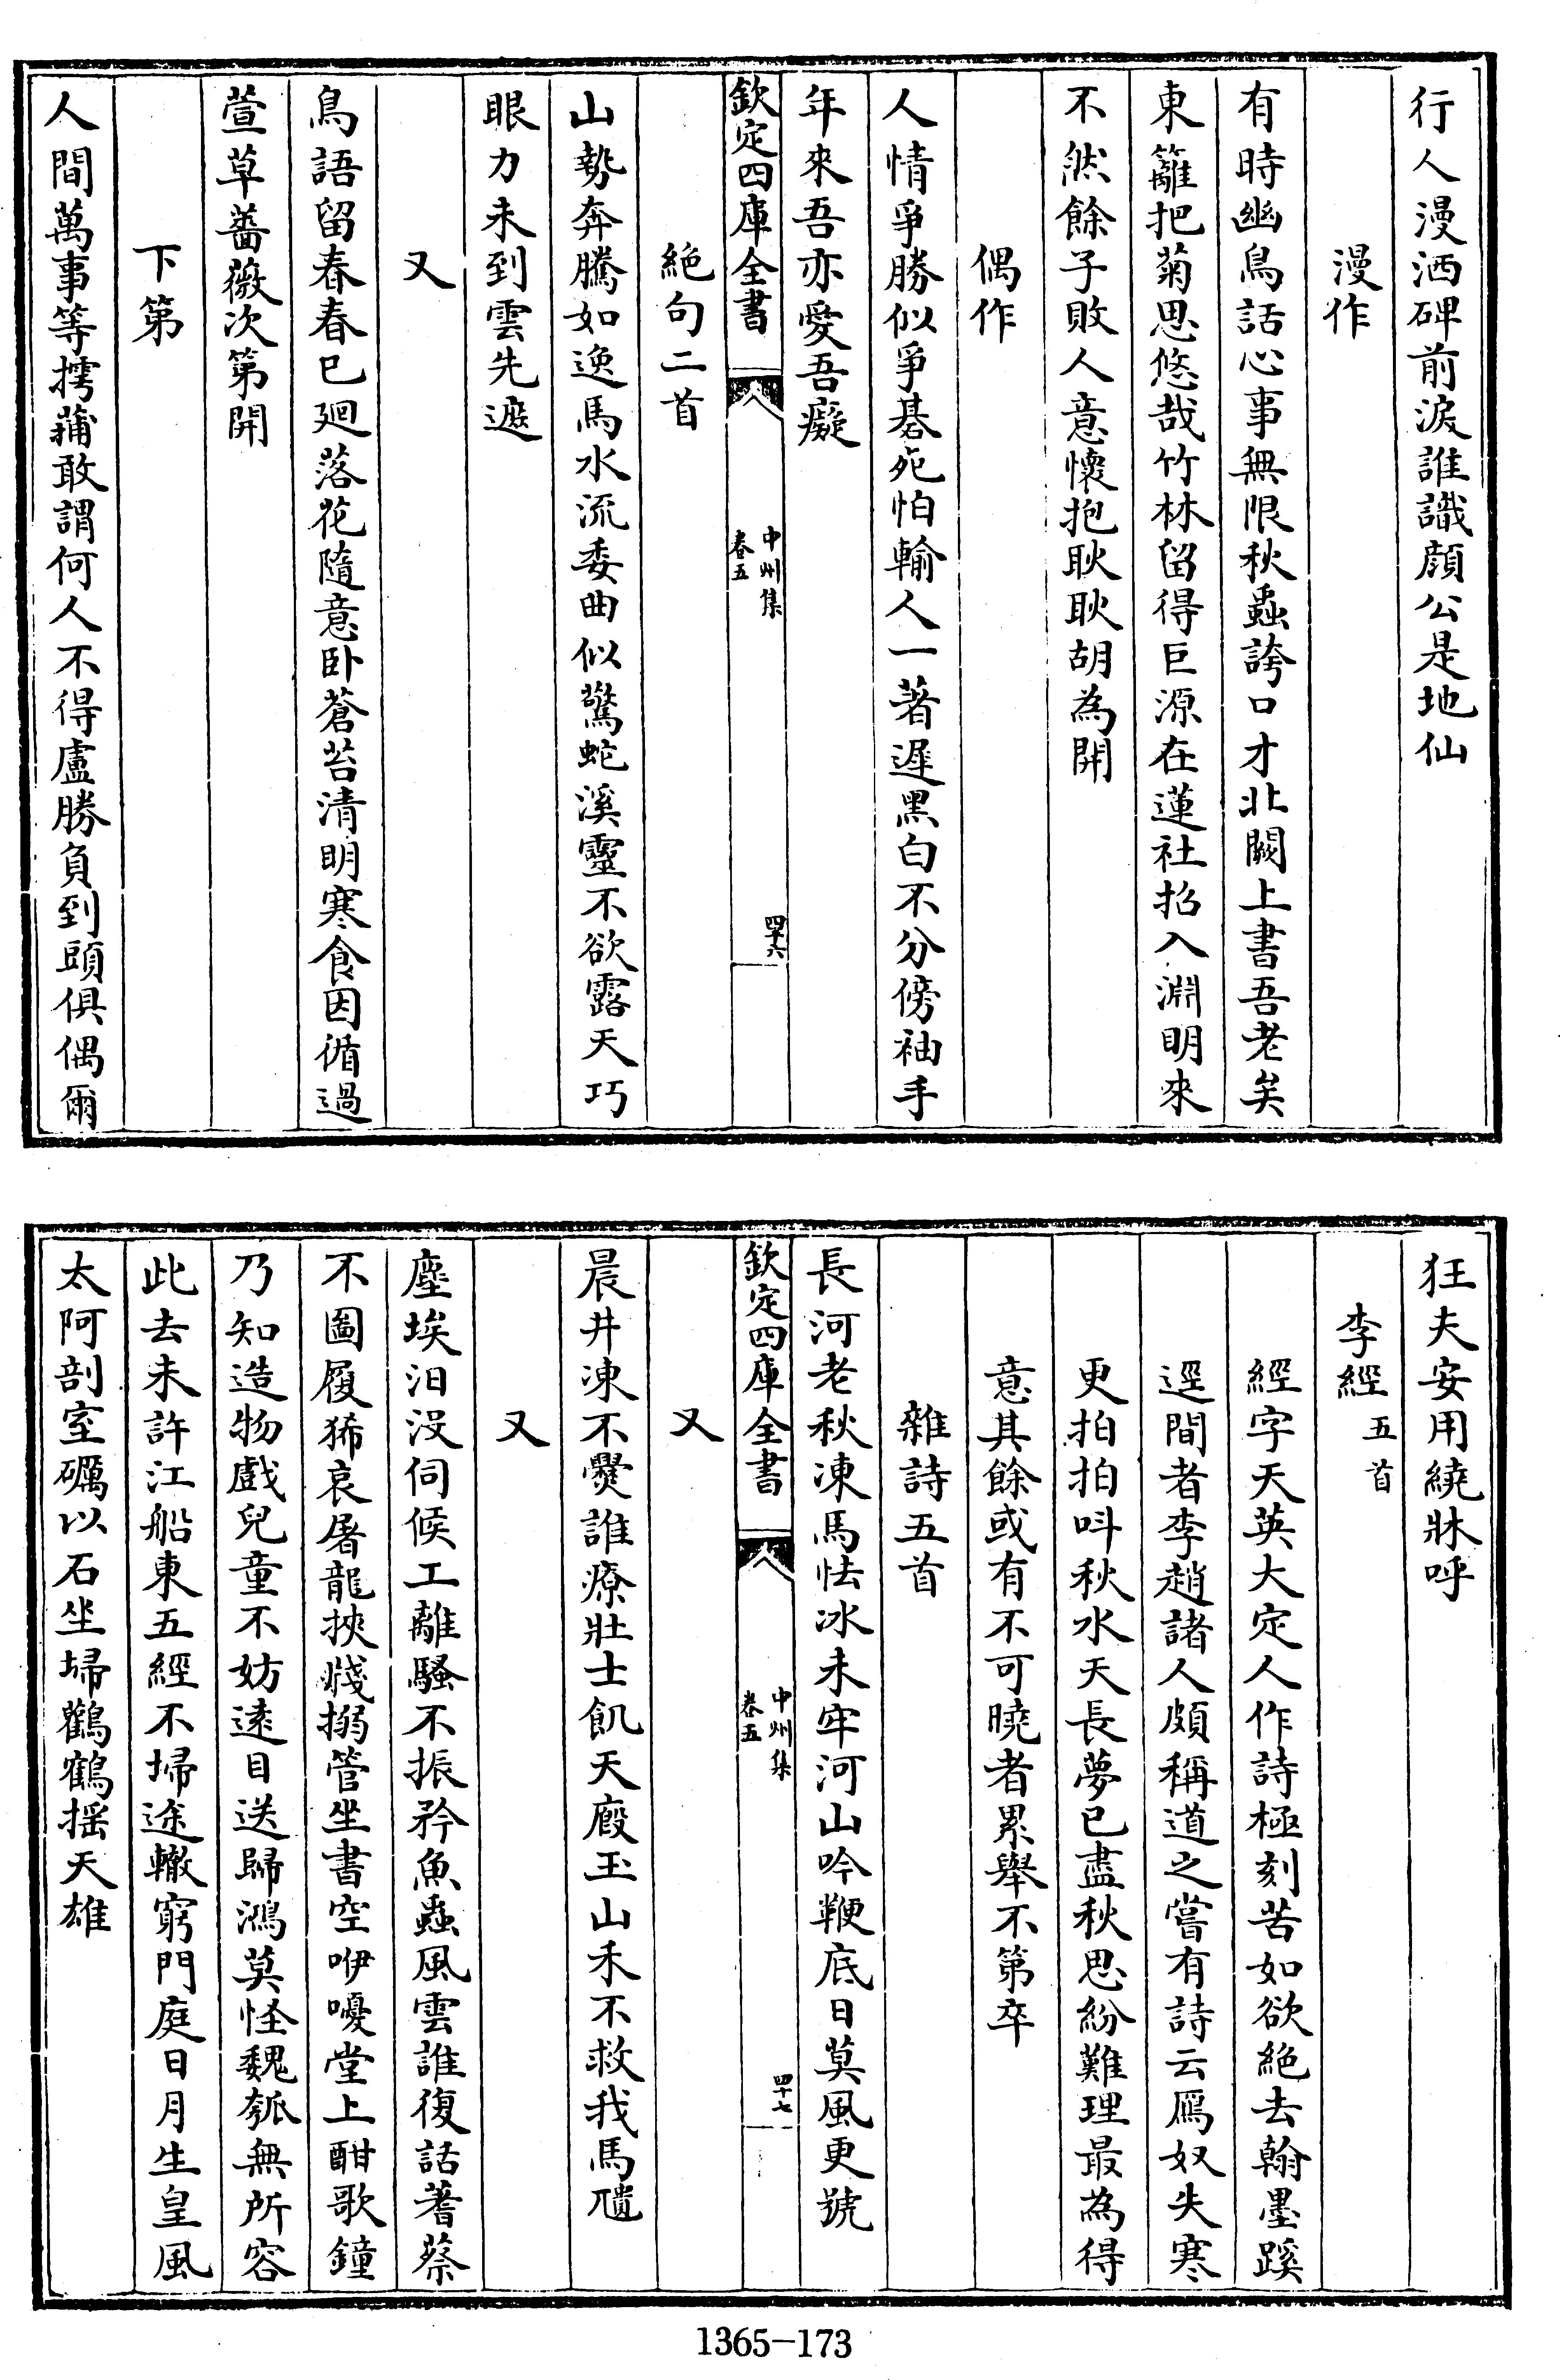 行人漫洒碑前淚誰識顔公是地仙
漫作
有時幽鳥話心事無限秋蟲誇口才北闕上書吾老矣
東籬把菊思悠哉竹林留得巨源在蓮社招入淵明來
不然餘子敗人意懷抱耿耿胡為開
偶作
人情爭勝似爭棊死怕輸人一著遲黑白不分傍袖手
年來吾亦愛吾癡
欽定四庫全書
中州集
卷五
四十六
絶句二首
山勢奔騰如逸馬水流委曲似驚蛇溪靈不欲露天巧
眼力未到雲先遮
又
鳥語留春春已廻落花隨意卧蒼苔清明寒食因循過
萱草薔薇次第開
下第
人間萬事等摴蒱敢謂何人不得盧勝負到頭俱偶爾
狂夫安用繞牀呼
李經
五首
經字天英大定人作詩極刻苦如欲絶去翰墨蹊
逕間者李趙諸人頗稱道之嘗有詩云鴈奴失寒
更拍拍呌秋水天長夢已盡秋思紛難理最為得
意其餘或有不可曉者累舉不第卒
雜詩五首
長河老秋凍馬怯冰未牢河山吟鞭底日莫風更號
欽定四庫全書
中州集
卷五
四十七
又
晨井凍不㸑誰療壯士飢天廏玉山禾不救我馬隤
又
塵埃汨没伺候工離騷不振矜魚蟲風雲誰復話蓍蔡
不圖履狶哀屠龍挾牋搦管坐書空咿嚘堂上酣歌鐘
乃知造物戲兒童不妨遠目送歸鴻莫怪魏瓠無所容
此去未許江船東五經不埽途轍窮門庭日月生皇風
太阿剖室礪以石坐埽鸛鶴摇天雄
1365-173